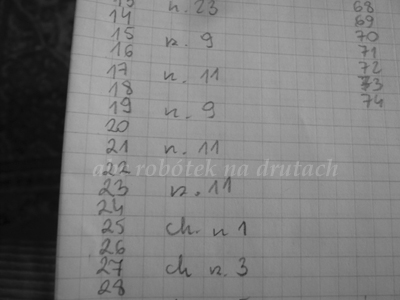 13 n. 23
14
15 n. 9
16
17 n. 11
18
19 n. 9
20
21 n. 11
22
23 n. 11
24
25 ch. n 1
26
27 ch n. 3
28
68
69
70
71
72
73
74
robótek na drutach